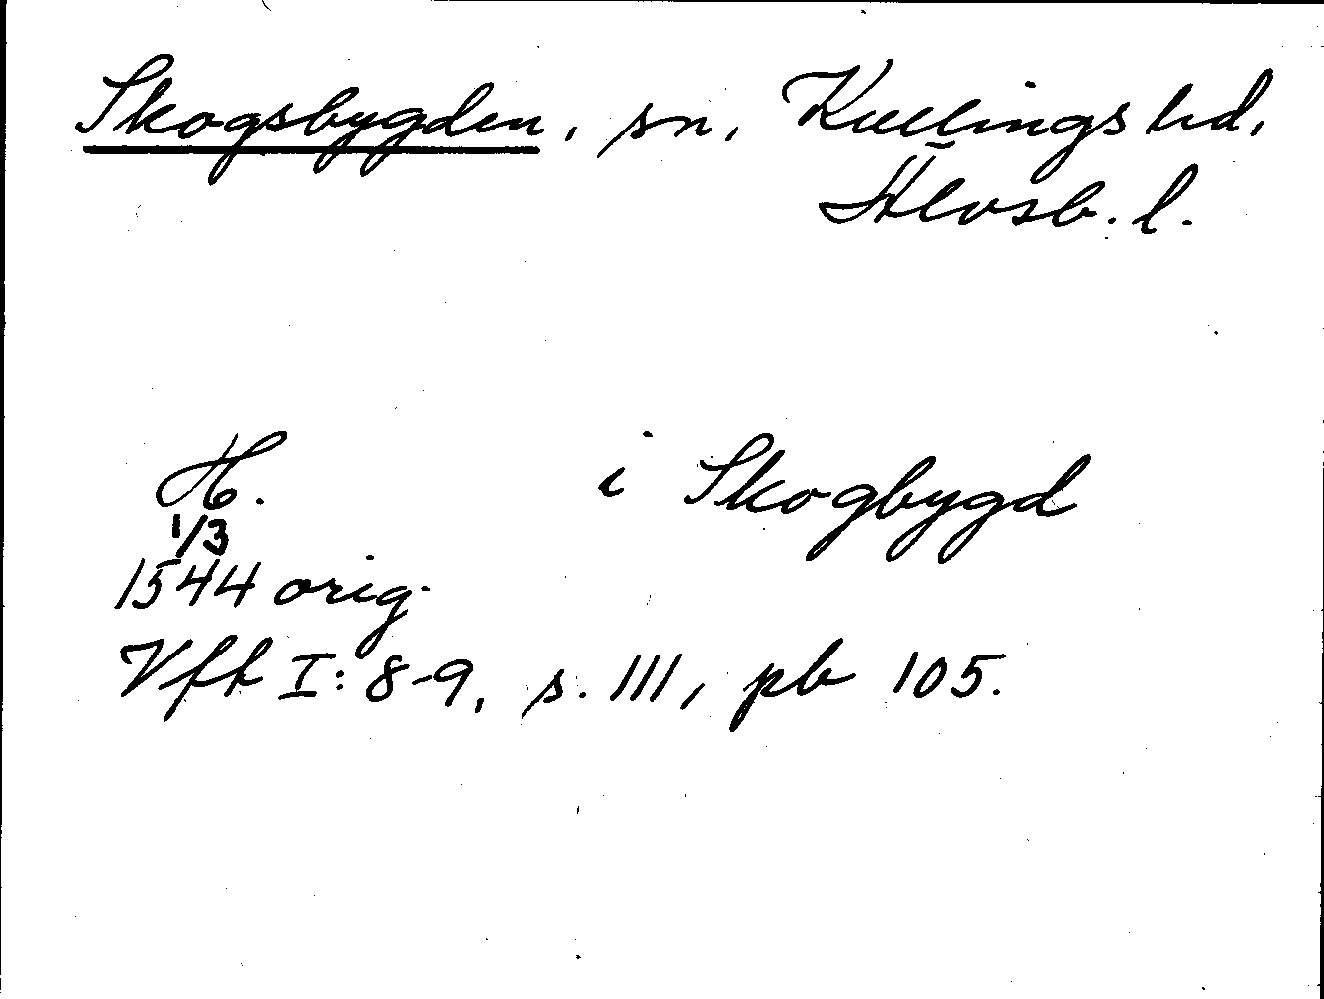 Skogsbygden, sn, Kullings hd,
Älvsb. l.
H. i Skogbygd
1/3
1544 orig.
Vfh I: 8-9, s. 111, pb 105.